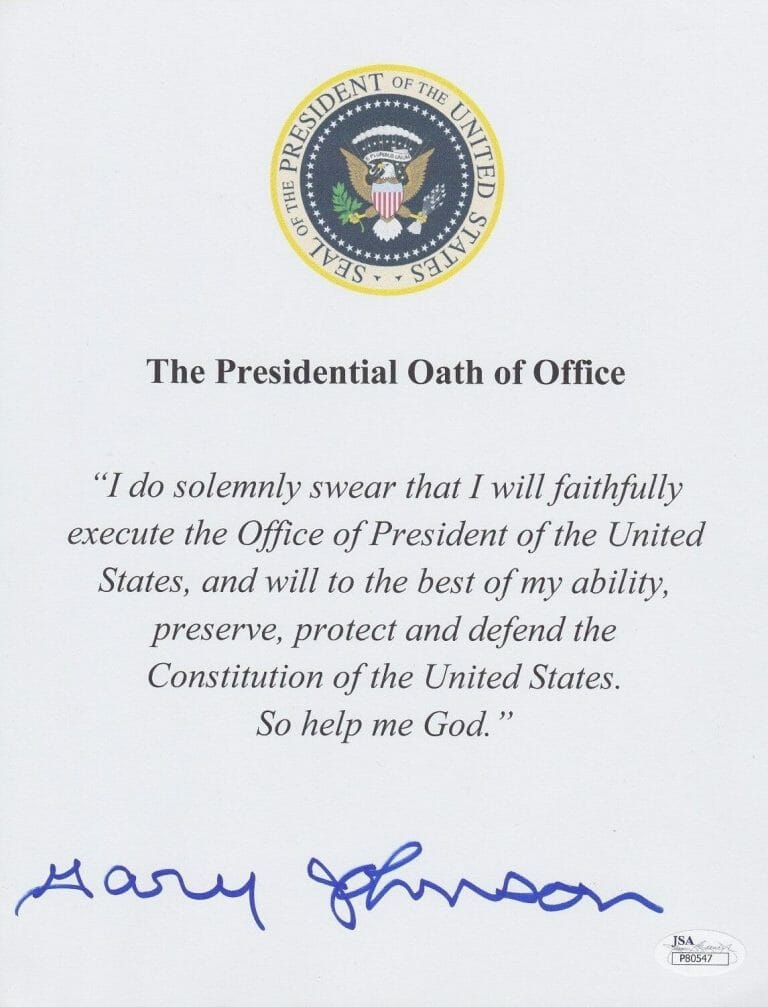 SEAL OF THE PRESIDENT OF THE UNITED STATES
E PLURIBUS UNUM
The Presidential Oath of Office
“I do solemnly swear that I will faithfully
execute the Office of President of the United
States, and will to the best of my ability,
preserve, protect and defend the
Constitution of the United States.
So help me God.”
Gary Johnson
JSA
P80547